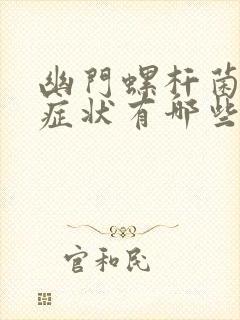 幽門螺杆菌
症状有哪些
官和民